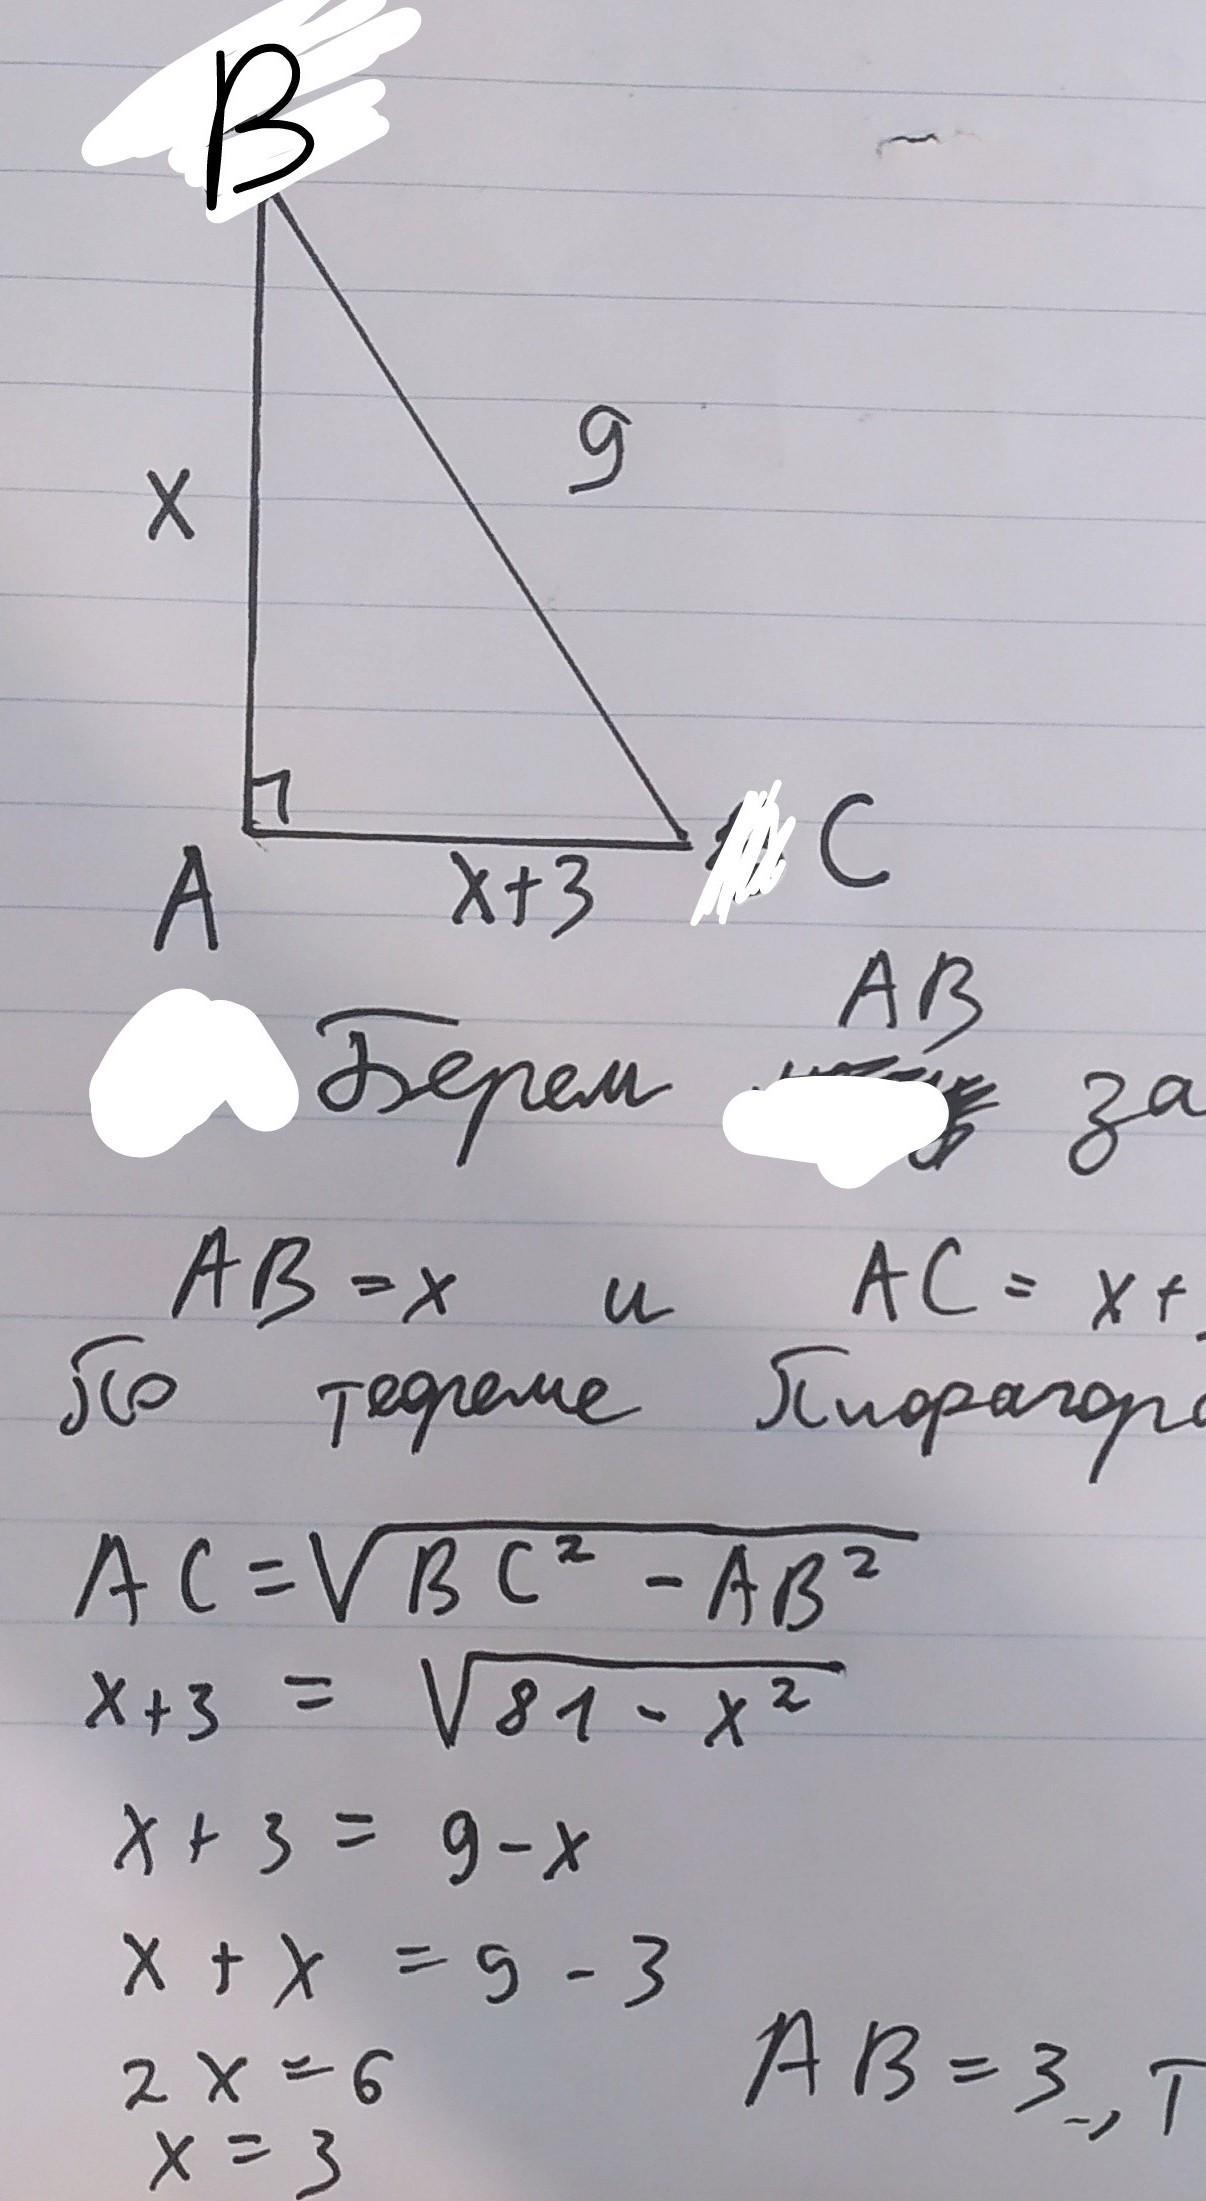 B
9
x
A
x+3
C
AB
Берем за
AB = x и AC = x +
По теореме Пиорагора
AC = √BC² - AB²
x+3 = √81 - x²
x + 3 = 9 - x
x + x = 9 - 3
2x = 6
AB = 3, т
x = 3